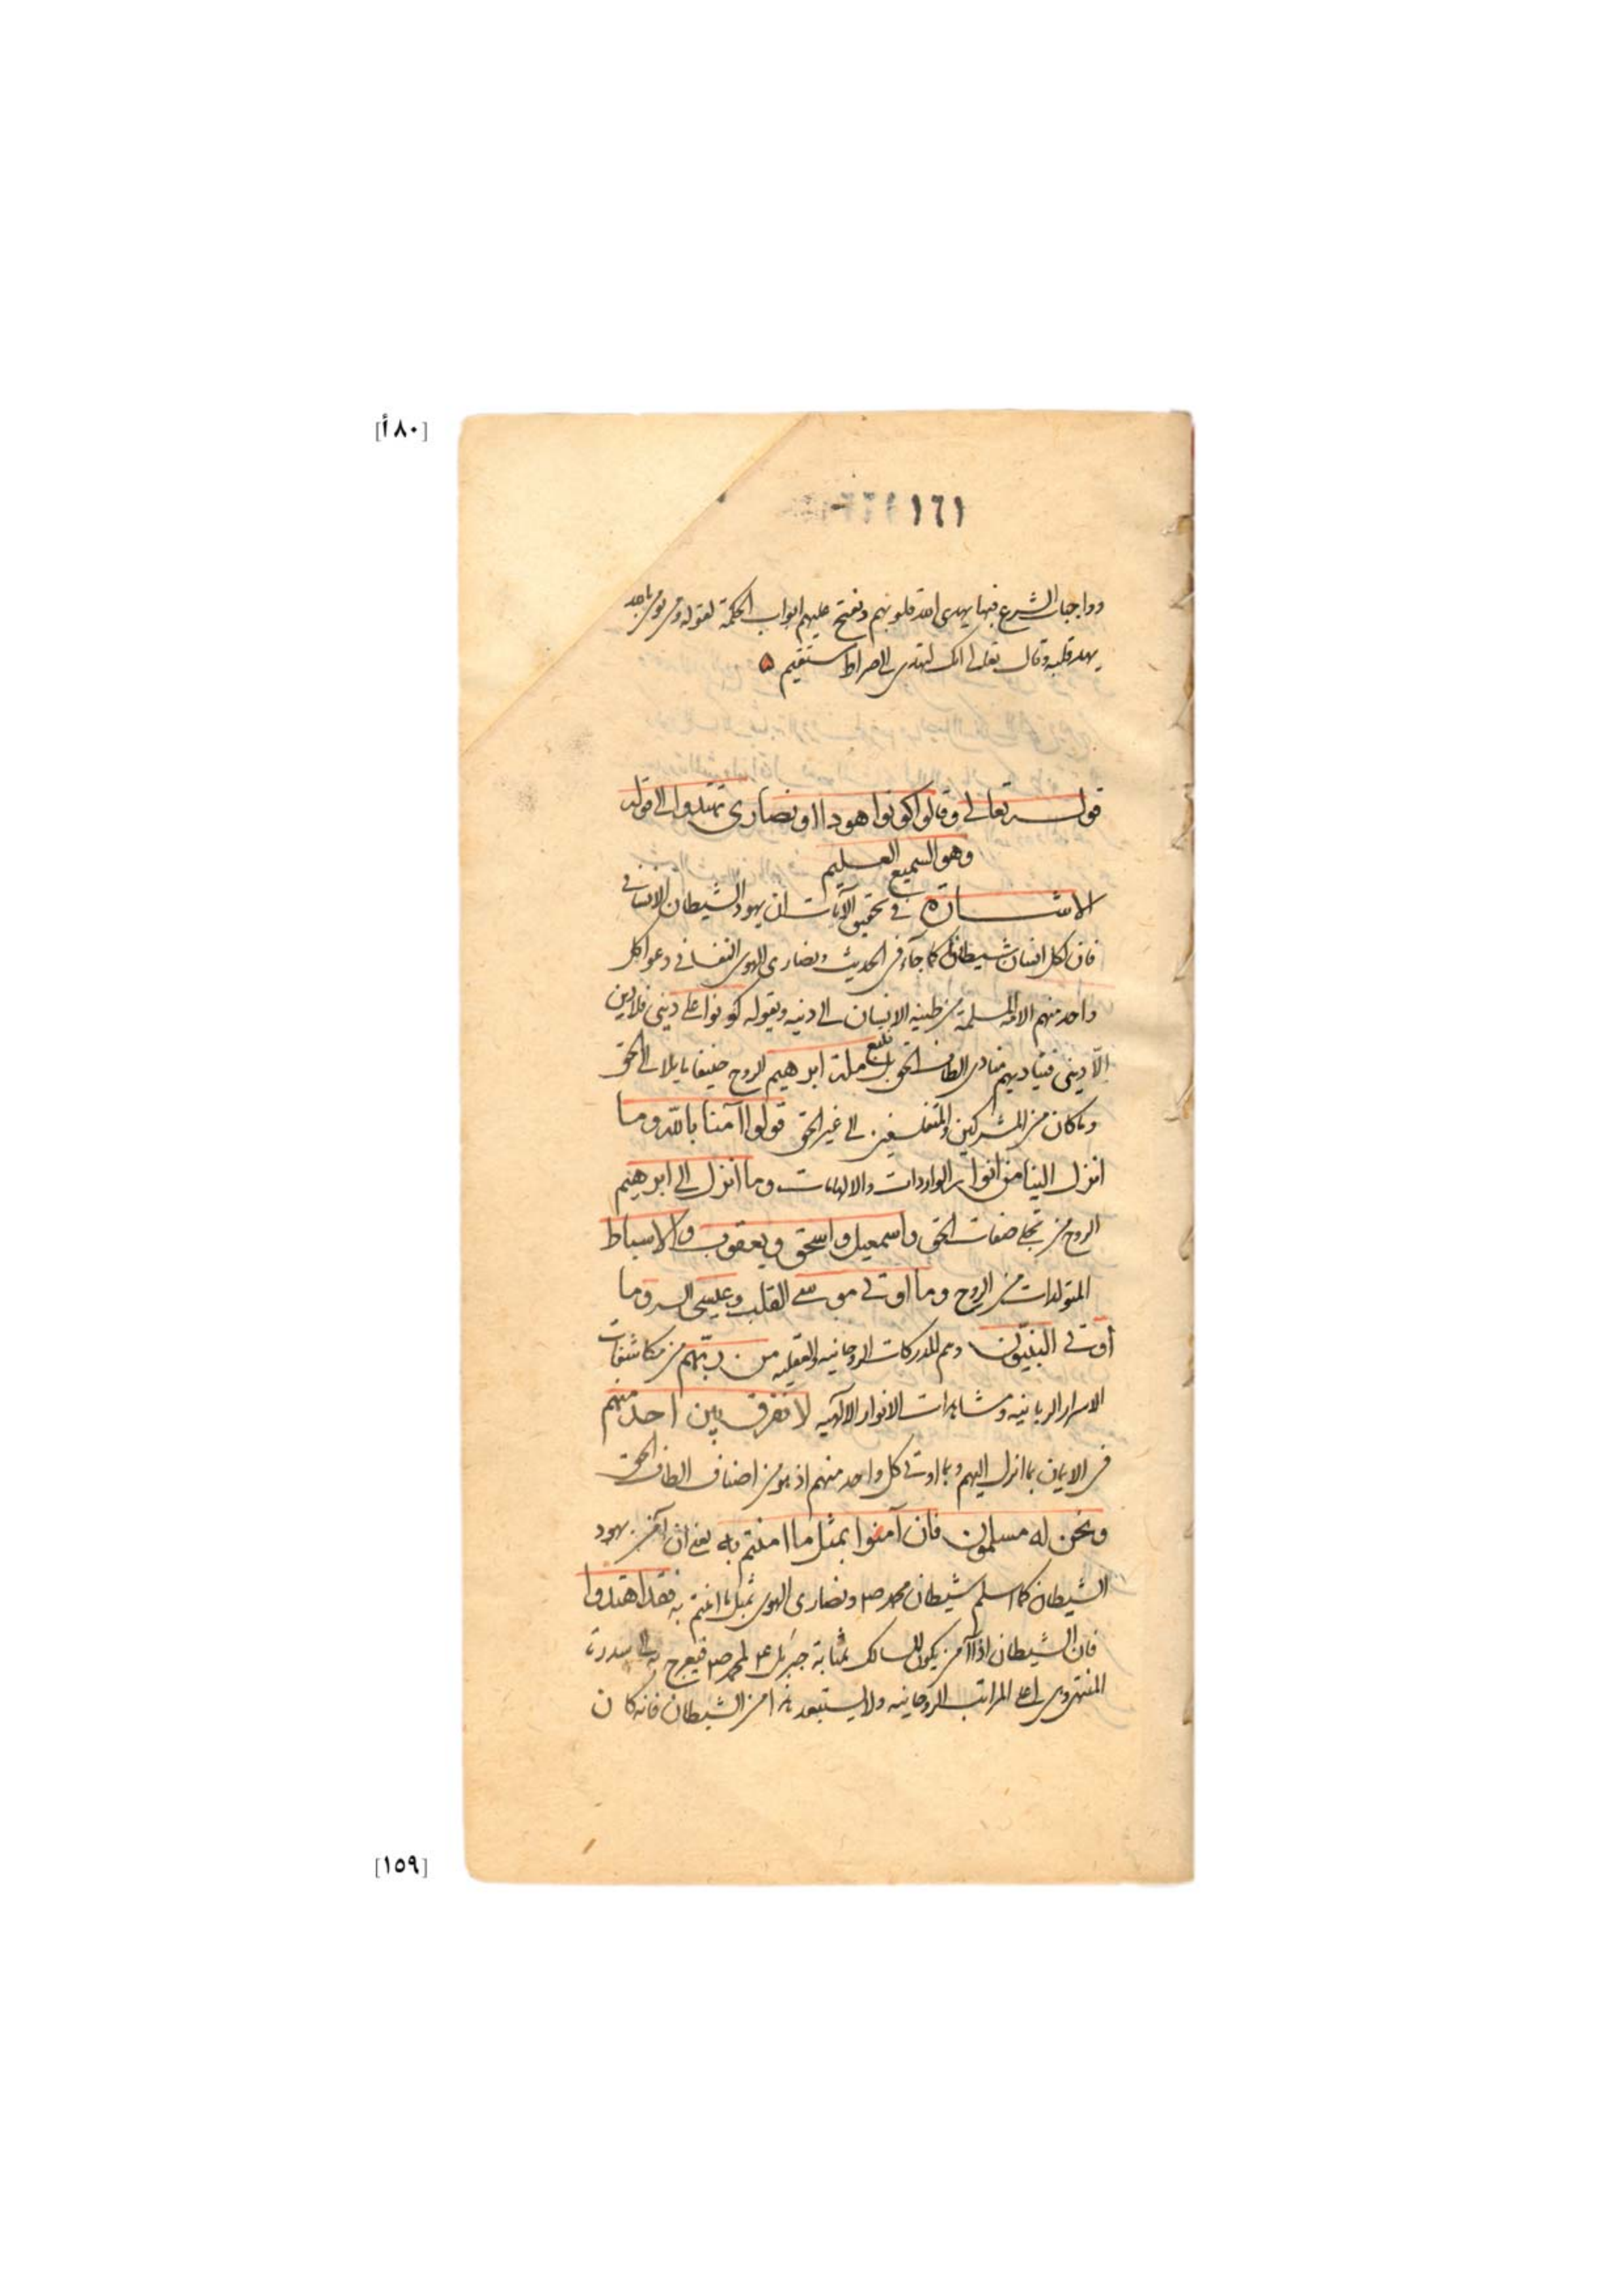 [٨٠أ]
١٦١
وواجبات الشرع فبها يهدى الله قلوبهم ونفتح عليهم ابواب الحكمة لقوله ومن يؤمن بالله
يهد قلبه وقال تعالى انك لتهدى الى صراط مستقيم
قوله تعالى وقالوا كونوا هودا او نصارى تهتدوا الى قوله
وهو السميع العليم
الاشارة فى تحقيق الآيات ان يهود الشيطان الانسانى
فان لكل انسان شيطانا كما جاء فى الحديث ونصارى الهوى النفسانى دعوا كل
واحد منهم الامة المسلمة من طينية الانسان الى دينه ويقوله كونوا على دينى فلا دين
الّا دينى فيناديهم منادى الطاف الحق بل نتبع ملة ابرهيم الروح حنيفا مايلا الى الحق
وما كان من المشركين والمتفلسفين الى غير الحق قولوا آمنا بالله وما
انزل الينا من انوار الواردات والالهامات وما انزل الى ابرهيم
الروح من تجلى صفات الحق واسمعيل واسحق ويعقوب والاسباط
المتولدات من الروح وما اوتى موسى القلب وعيسى السر وما
أوتى النبيّون وهم المدركات الروحانيه والعقليه من ربّهم من مكاشفات
الاسرار الربانيه ومشاهدات الانوار الالٓهيه لا نفرق بين احد منهم
فى الايمان بما انزل اليهم وبما اوتى كل واحد منهم اذ هو من اصناف الطاف الحق
ونحن له مسلمون فان آمنوا بمثل ما امنتم به يعنى ان آمن يهود
الشيطان كما اسلم شيطان محمد صم ونصارى الهوى بمثل ما امنتم به فقد اهتدوا
فان الشيطان اذا آمن يكون للسالك بمثابة جبرئل عم لمحمد صم فيعرج به الى سدرة
المنتهى وهى اعلى المراتب الروحانيه ولا يستبعد انه امن الشيطان فانه كان
[١٥٩]